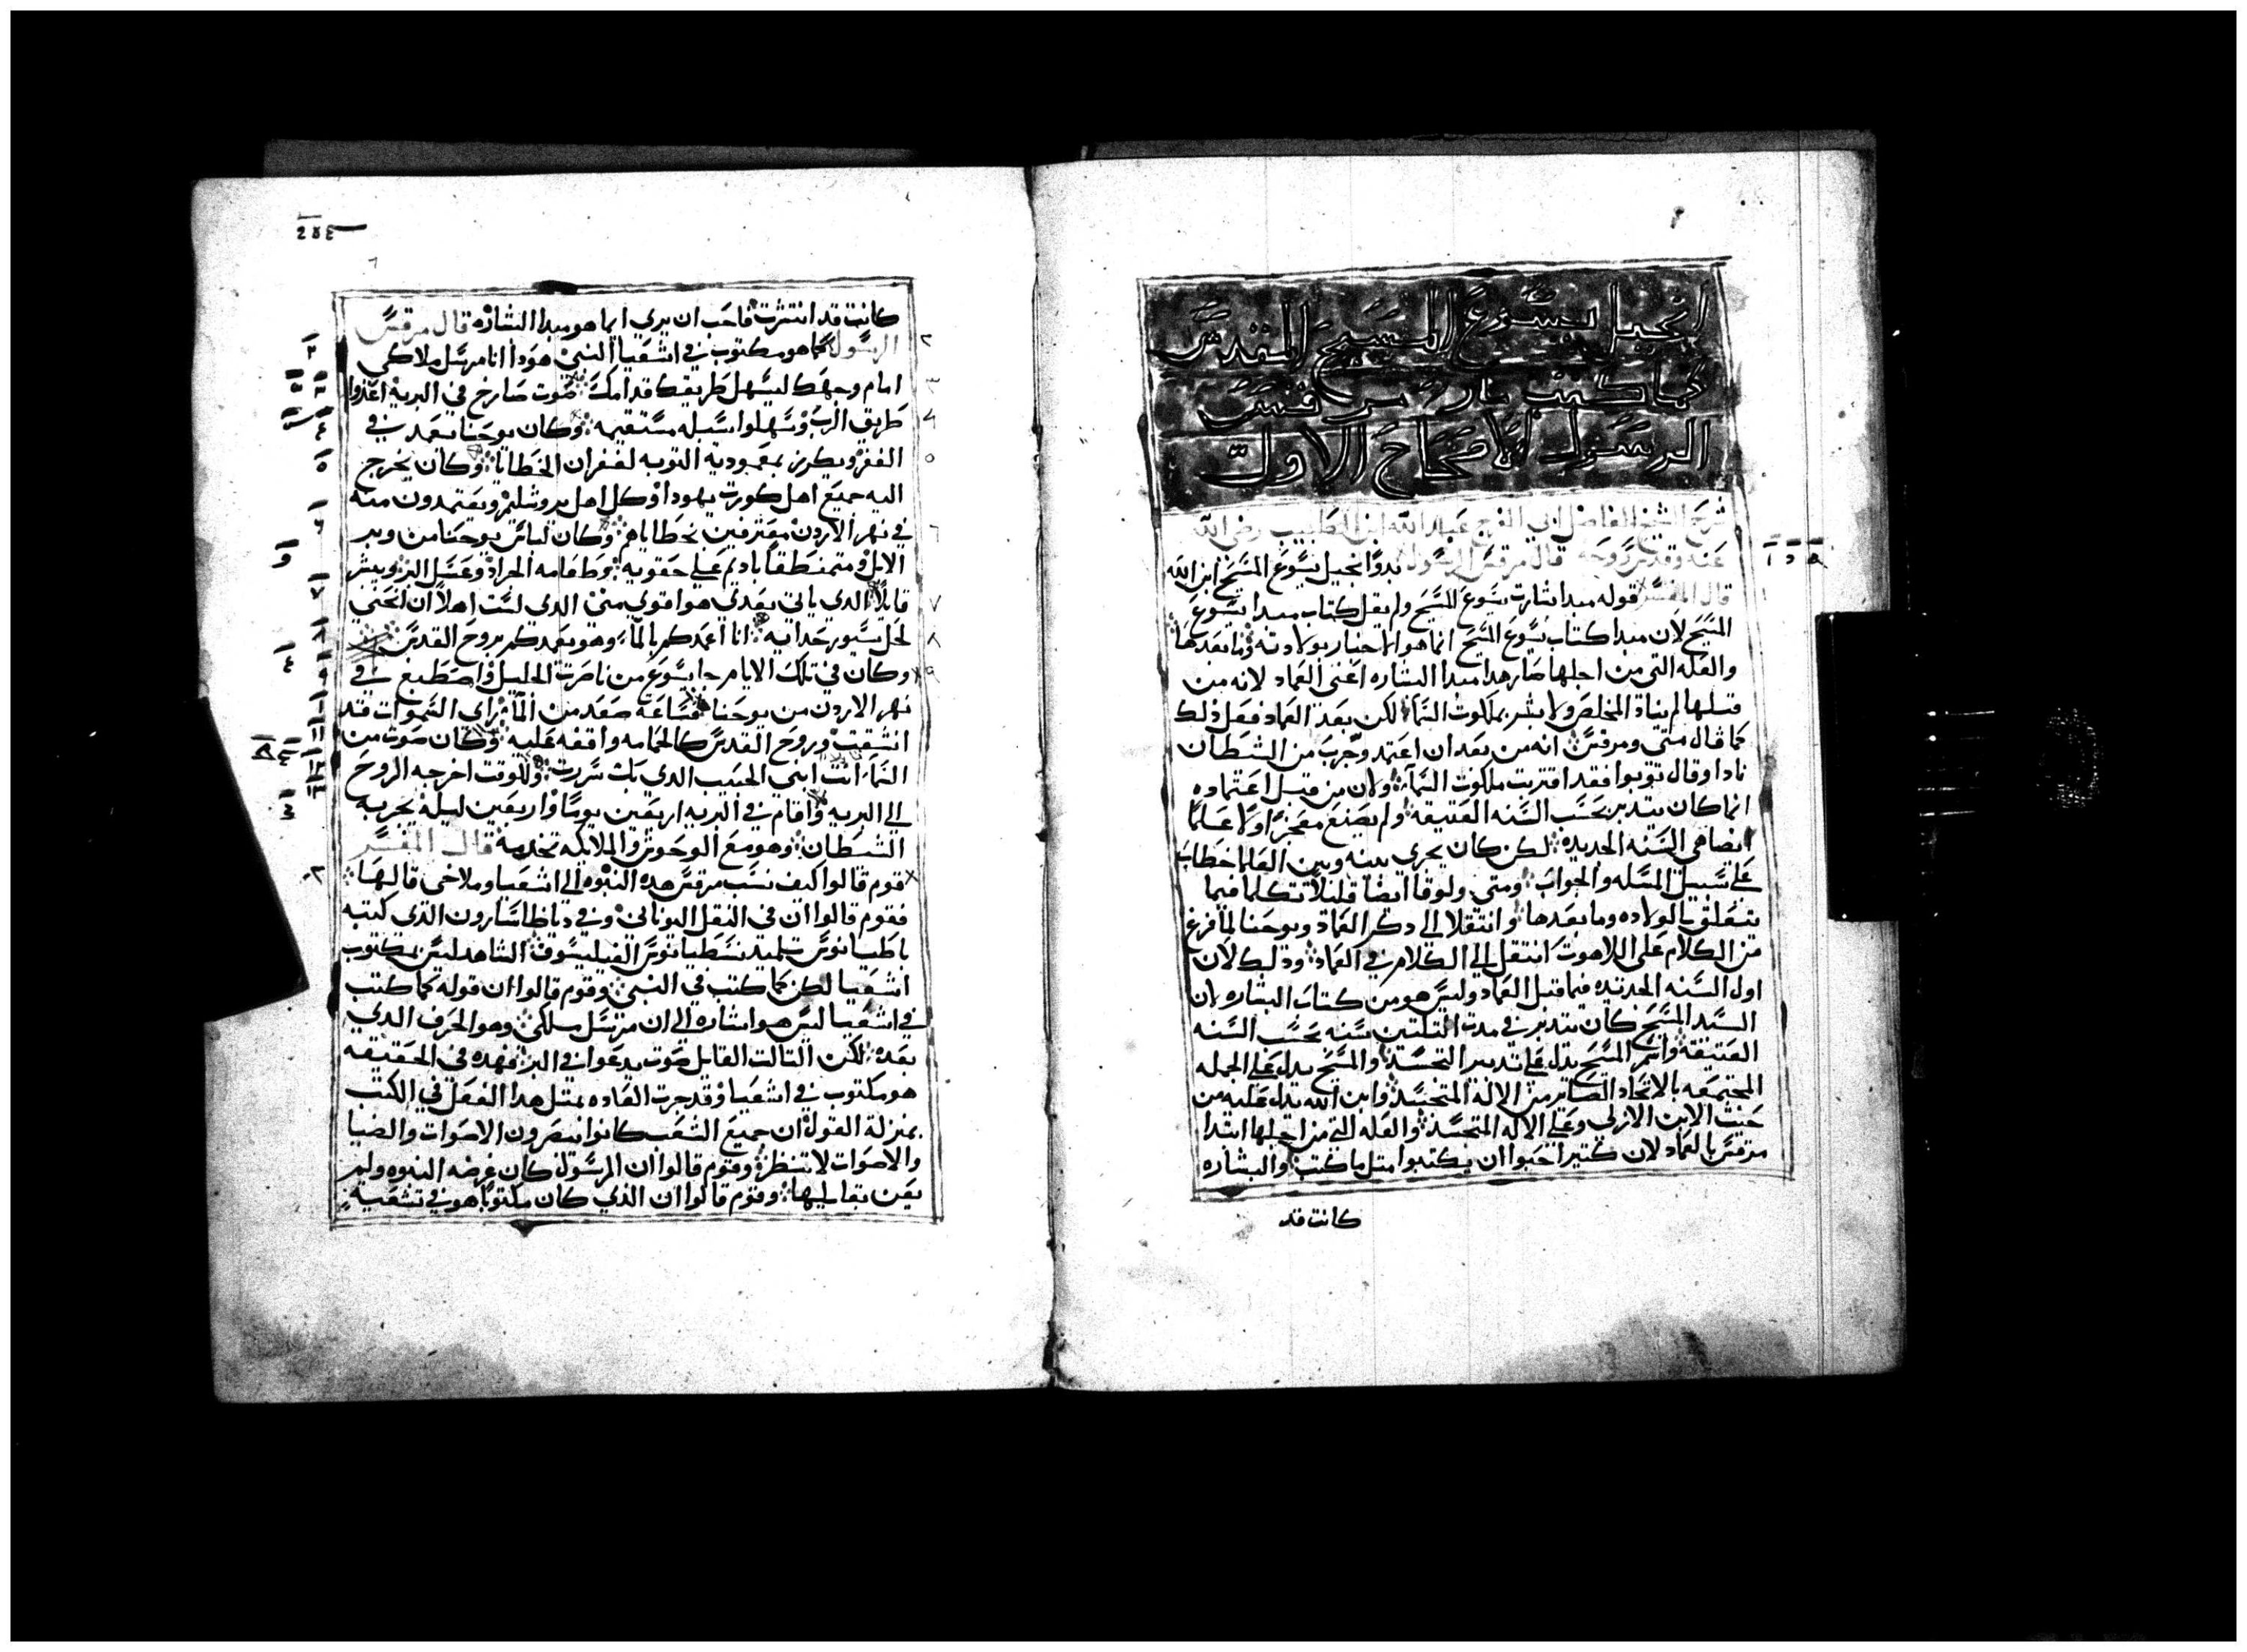 انجيل يسوع المسيح المقدس
كما كتبت مار مرقس
الرسول الافتتاح الاول
شرح الشيخ الفاضل ابي الفرج عبد الله ابن الطبيب رضى الله
عنه وقدس روحه قال مرقس الرسول بدو انجيل يسوع المسيح ابن الله
قال المفسر قوله مبدا بشارت يسوع المسيح ولم يقل كتاب مبدا يسوع
المسيح لان مبدا كتاب يسوع المسيح انما هو الاخبار بولادته وما بعدها
والعله التي من اجلها صار هدا مبدا البشاره اعني العماد لانه من
قبلها لم يناد المخلص ولا بشر بملكوت السما لكن بعد العماد فعل ذلك
كما قال متي ومرقس انه من بعد ان اعتمد وجرب من الشيطان
نادا وقال توبوا فقد اقتربت ملكوت السما ولان من قبل اعتماده
انما كان يتدبر بحسب السنه العتيقه ولم يصنع معجزا ولا علما
ايضا هي السنه الجديده لكن كان يجري بينه وبين العلما خطاب
علي سبيل المسله والجواب ومتي ولوقا ايضا قليلا تكلما فيما
يتعلق بالولاده وما بعدها وانتقلا الي دكر العماد ويوحنا لما فرغ
من الكلام على اللاهوت انتقل الي الكلام في العماد ودلك لان
اول السنه الجديده فيما قبل العماد وليس هو من كتاب البشاره لان
السيد المسيح كان يتدبر في مدت الثلثين سنه بحسب السنه
العتيقه واسم المسيح يدل علي تدبير التجسد والمسيح يدل علي الجمله
المجتمعه بالاتحاد الصاير من الاله المتجسد وابن الله يدل عليه من
حيث الابن الازلي وعلي الاله المتجسد والعله التي من اجلها ابتدا
مرقس بالعماد لان كتيرا احبوا ان يكتبوا متل ما كتب والبشاره
كانت قد
كانت قد انتشرت فاحب ان يري ايما هو مبدا البشاره قال مرقس
الرسول كما هو مكتوب في اشعيا النبي هودا انا مرسل ملاكي
امام وجهك ليسهل طريقك قدامك صوت صارخ في البريه اعدوا
طريق الرب وسهلوا سبله مستقيمه وكان يوحنا يعمد في
القفر ويكرز بمعموديه التوبه لغفران الخطايا وكان يخرج
اليه جميع اهل كورت يهودا وكل اهل يروشليم ويعتمدون منه
في نهر الاردن معترفين بخطاياهم وكان لباس يوحنا من وبر
الابل ومتمنطقا بادم علي حقويه وطعامه الجراد وعسل البر ويبشر
قايلا الدي ياتي بعدي هو اقوي مني الدي لست اهلا ان انحني
لحل سيور حدايه انا اعمدكم بالماء وهو يعمدكم بروح القدس
وكان في تلك الايام جا يسوع من ناصرت الجليل واصطبغ في
نهر الاردن من يوحنا فساعه صعد من الما راي السموات قد
انشقت وروح القدس كالحمامه واقفه عليه وكان صوت من
السما انت ابني الحبيب الدي بك سررت وللوقت اخرجه الروح
الي البريه واقام في البريه اربعين يوما واربعين ليله يجربه
الشيطان وهو مع الوحوش والملايكه تخدمه قال المفسر
قوم قالوا كيف نسب مرقس هده النبوه الي اشعيا وملاخي قالها
فقوم قالوا ان في النقل اليوناني وفي دياطاسارون الذي كتبه
طاطيانوس تلميد يسطيانوس الفيليسوف الشاهد ليس مكتوب
اشعيا لكن كما كتب في النبي وقوم قالوا ان قوله كما كتب
في اشعيا ليس هو اشاره الي ان مرسل ملاكي وهو الحرف الدي
بعده لكن التالت القايل صوت يدعوا في البر فهده في الحقيقه
هو مكتوب في اشعيا وقد جرت العاده بمتل هدا الفعل في الكتب
بمنزلة القول ان جميع الشعب كانوا يبصرون الاصوات والضيا
والاصوات لا تنظر وقوم قالوا ان الرسول كان غرضه النبوه ولم
يعن بقايليها وقوم قالوا ان الذي كان مكتوبا هو في تشعيه